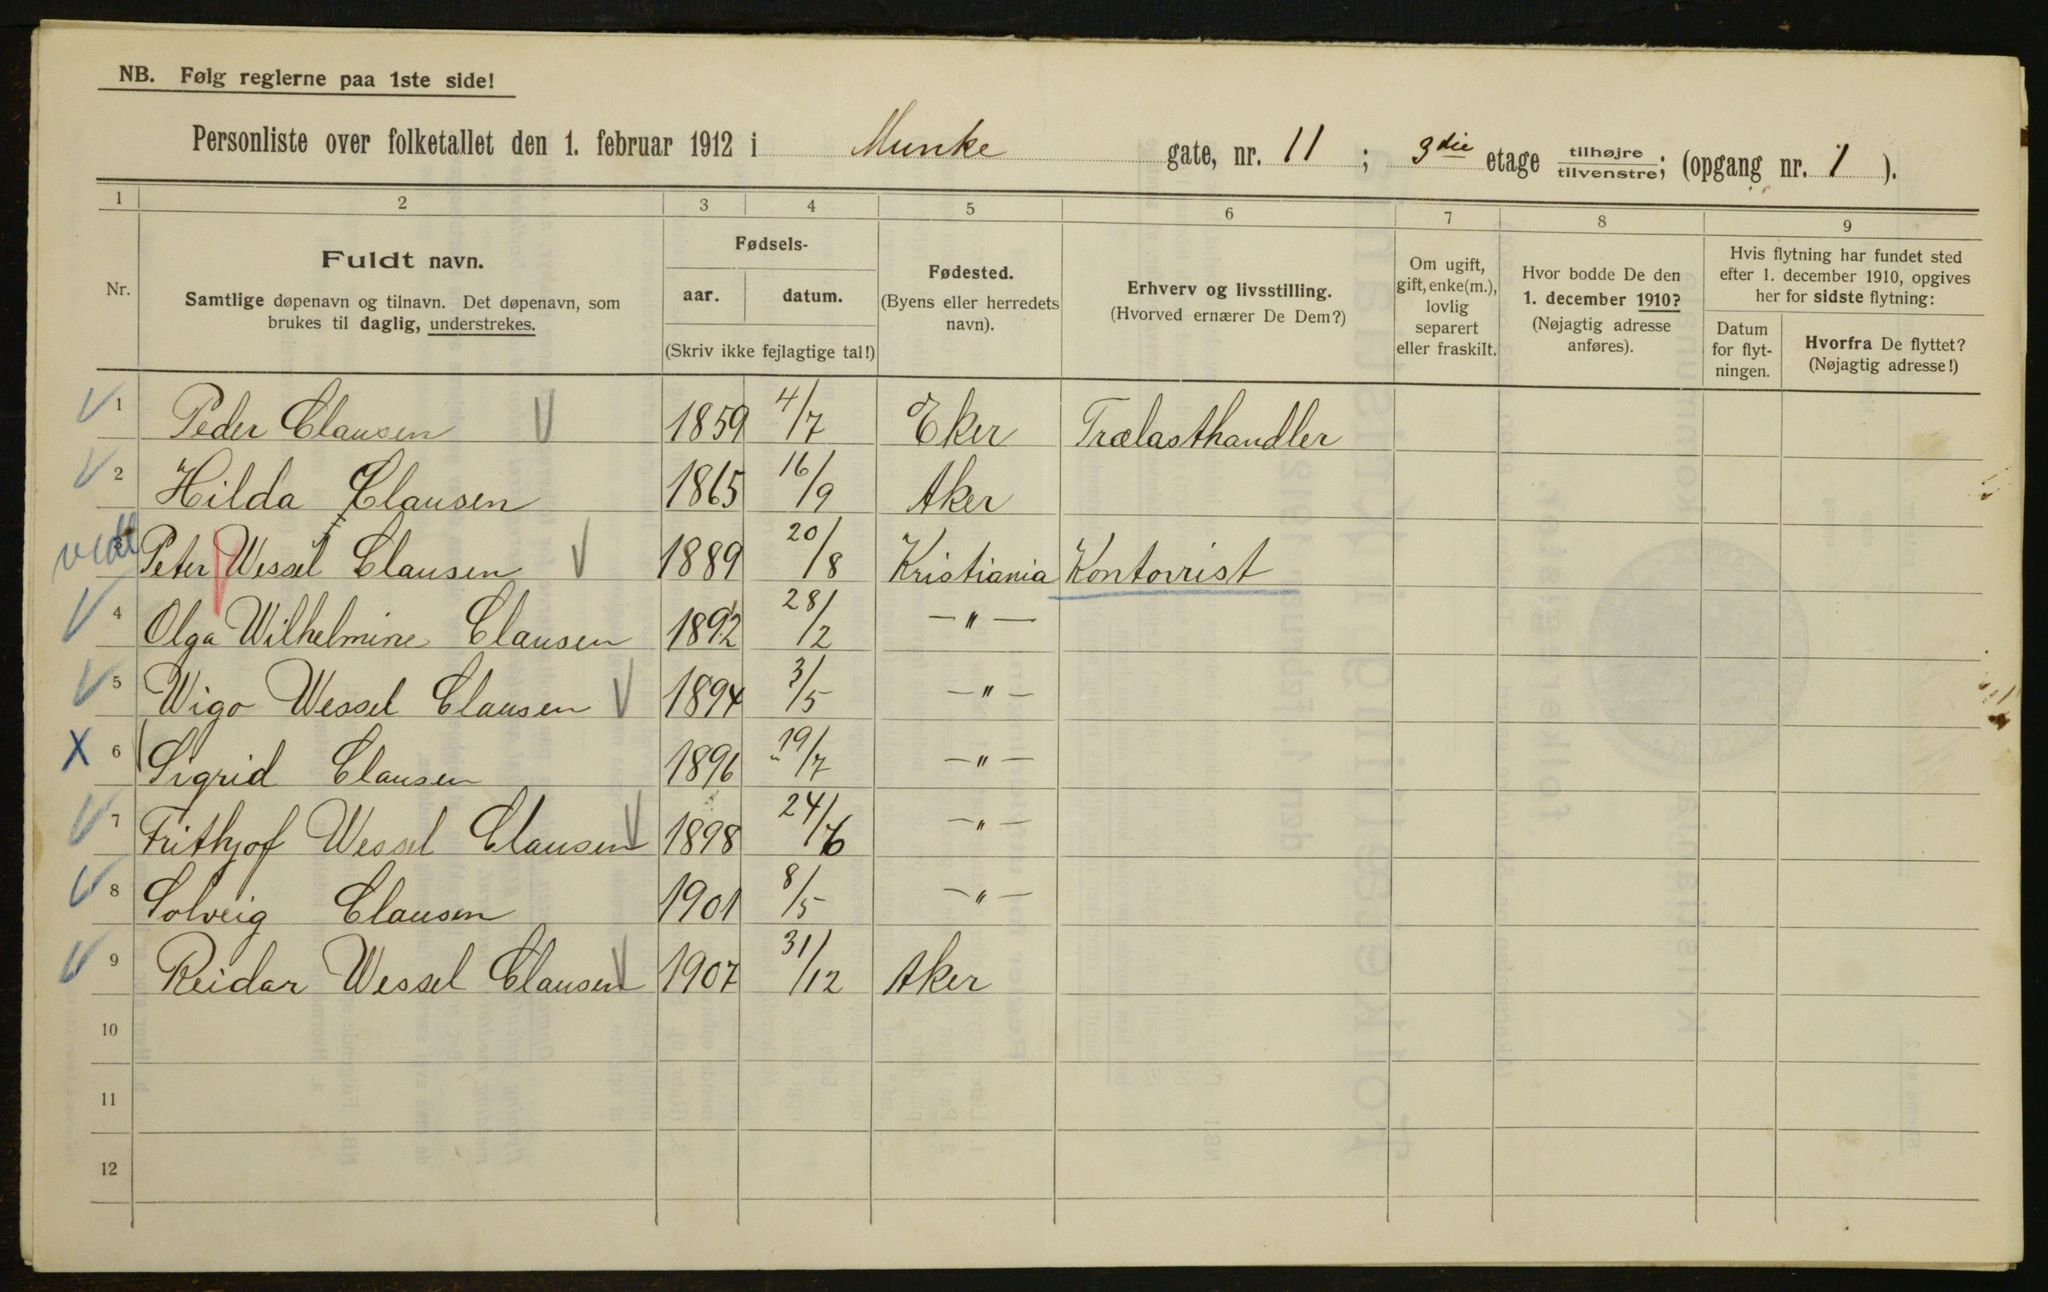 NB. Følg reglerne paa 1ste side!
Personliste over folketallet den 1. februar 1912 i Munke gate, nr. 11 ; 3die etage tilhøjre tilvenstre; (opgang nr. 1 ).
1 2 3 4 5 6 7 8 9
Nr.
Fuldt navn.
Samtlige døpenavn og tilnavn. Det døpenavn, som
brukes til daglig, understrekes.
Fødsels-
aar. datum.
(Skriv ikke fejlagtige tal!)
Fødested.
(Byens eller herredets
navn).
Erhverv og livsstilling.
(Hvorved ernærer De Dem?)
Om ugift,
gift, enke(m.),
lovlig
separert
eller fraskilt.
Hvor bodde De den
1. december 1910?
(Nøjagtig adresse
anføres).
Hvis flytning har fundet sted
efter 1. december 1910, opgives
her for sidste flytning:
Datum
for flyt-
ningen.
Hvorfra De flyttet?
(Nøjagtig adresse!)
1 Peder Clausen 1859 4/7 Eker Trælasthandler
2 Hilda Clausen 1865 16/9 Aker
3 Peter Wessel Clausen 1889 20/8 Kristiania Kontorist
4 Olga Wilhelmine Clausen 1892 28/2 — " —
5 Wigo Wessel Clausen 1894 3/5 — " —
6 Sigrid Clausen 1896 19/7 — " —
7 Frithjof Wessel Clausen 1898 24/6 — " —
8 Solveig Clausen 1901 8/5 — " —
9 Reidar Wessel Clausen 1907 31/12 Aker
10
11
12